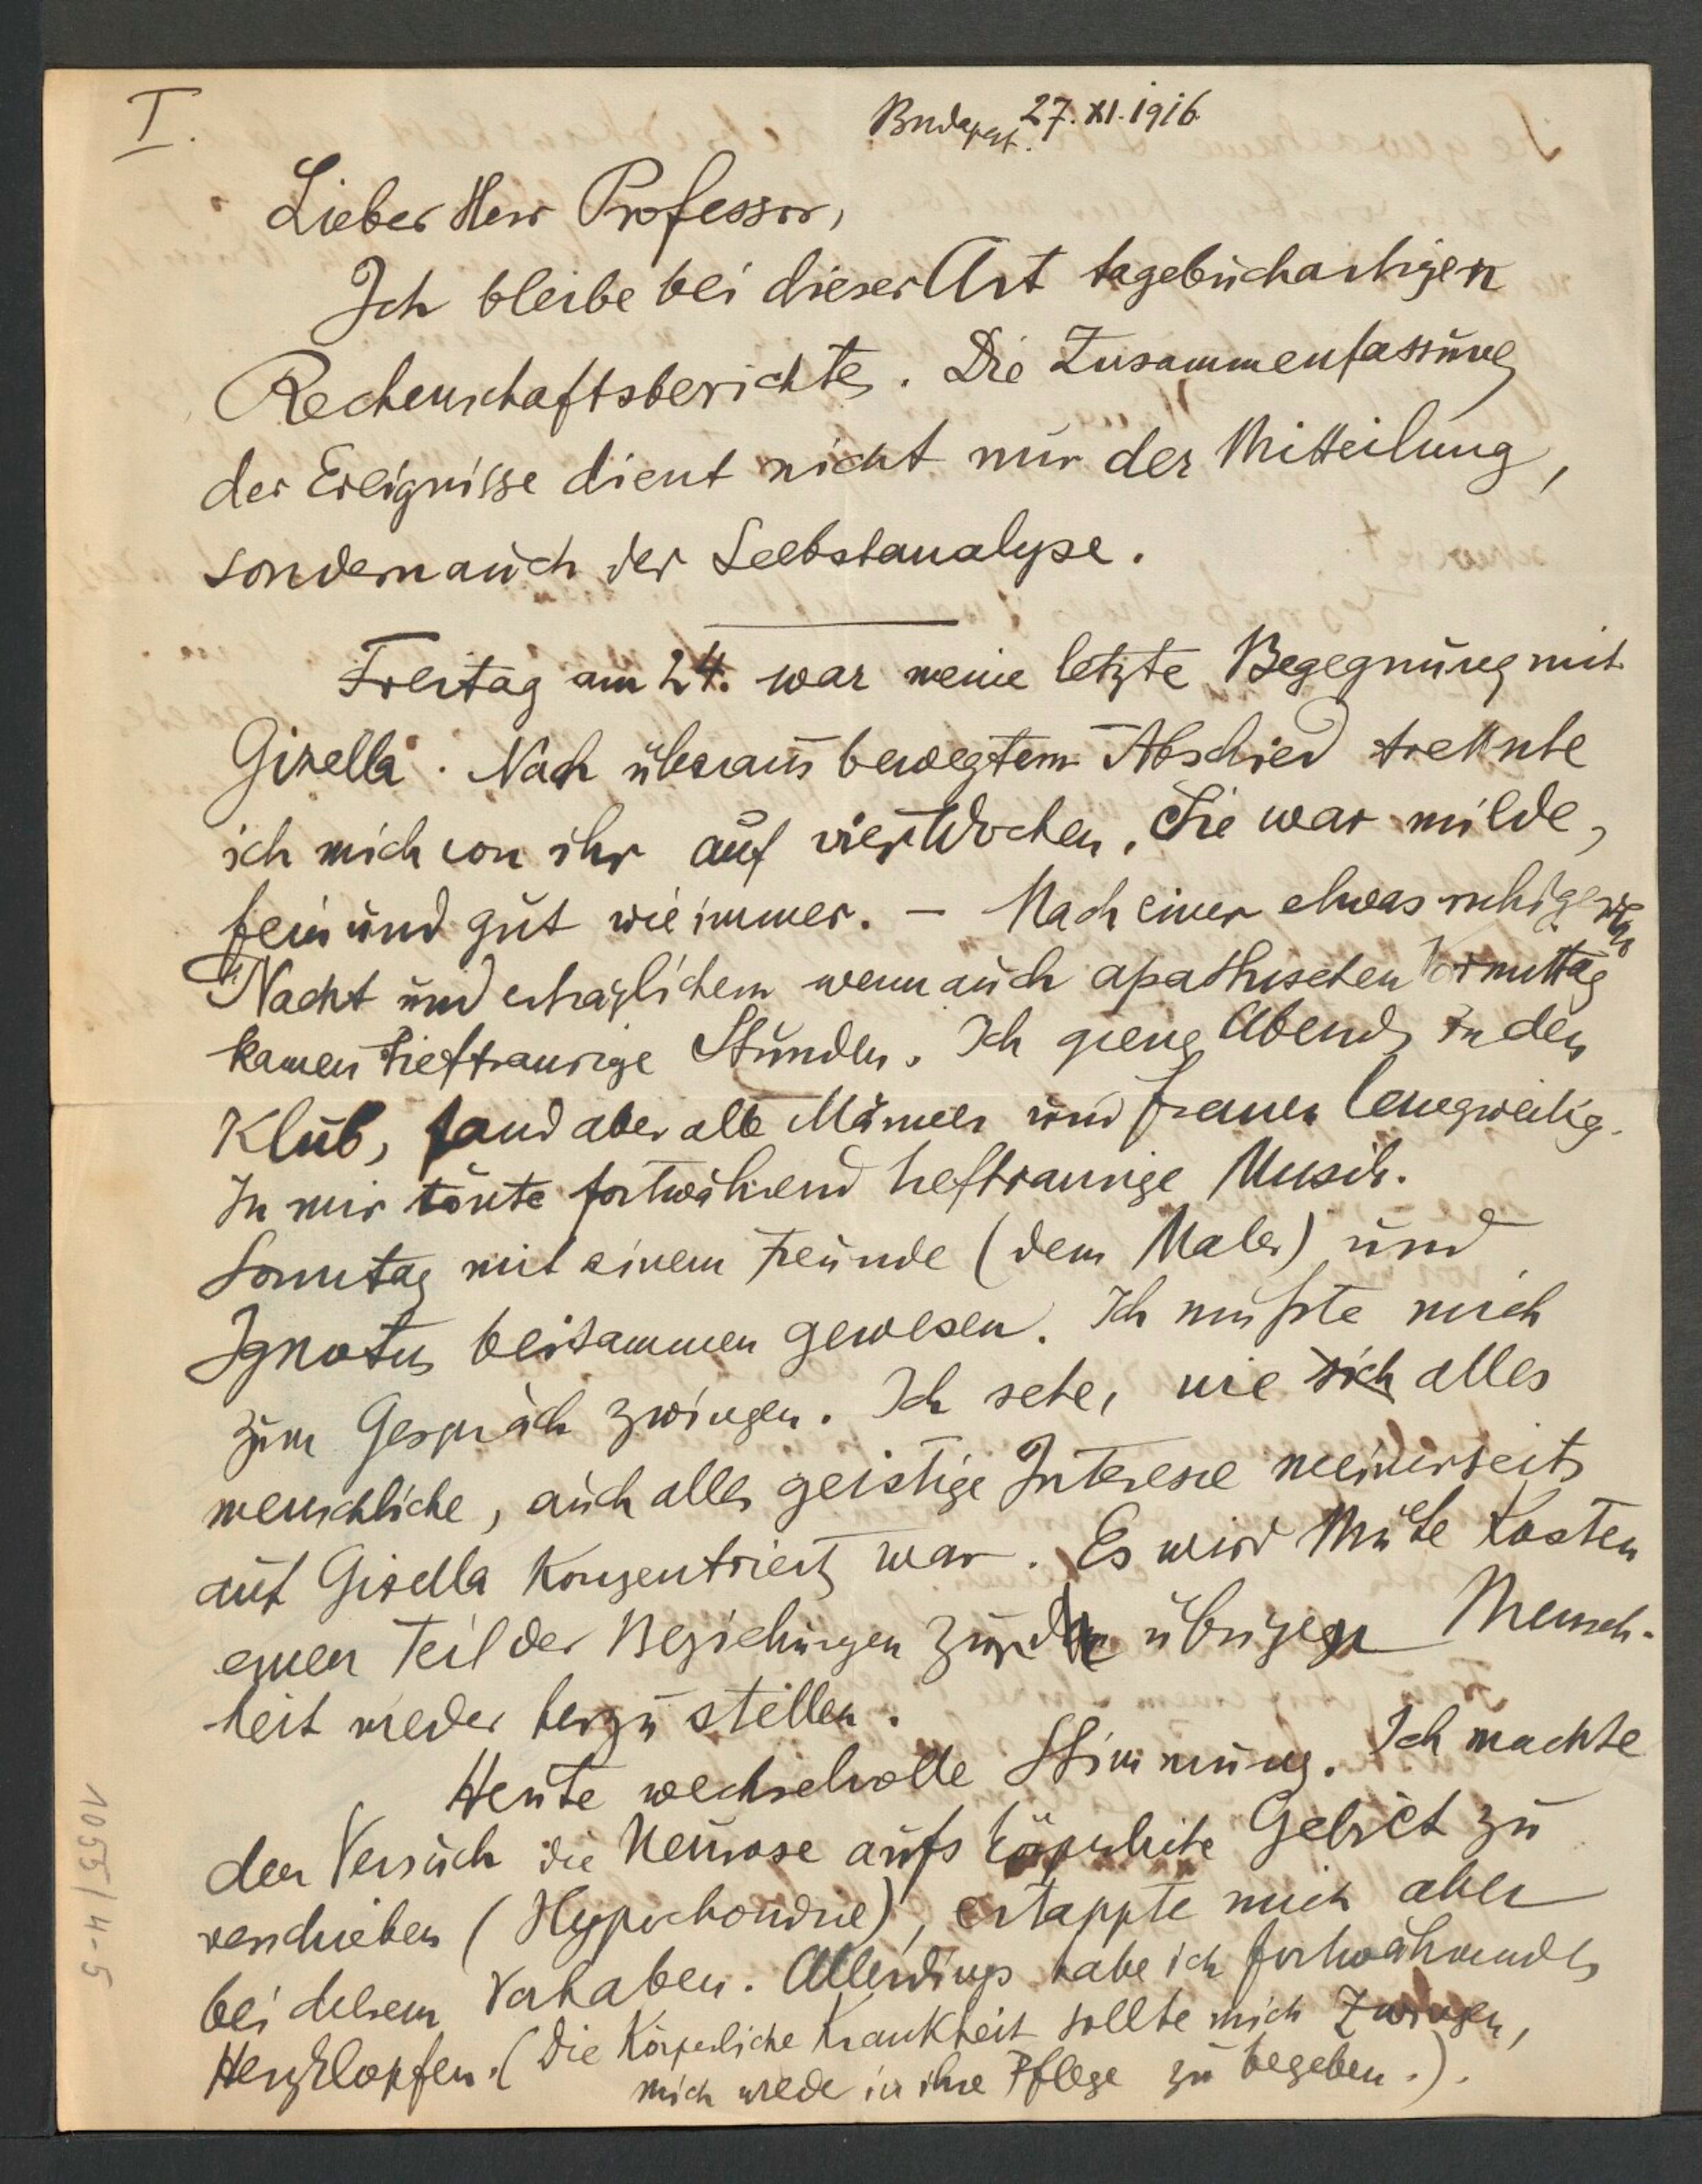 I.
Budapest. 27. XI. 1916.
Lieber Herr Professor,
Ich bleibe bei dieser Art tagebuchartigen
Rechenschaftsberichtes. Die Zusammenfassung
der Ereignisse dient nicht nur der Mitteilung,
sondern auch der Selbstanalyse.
Freitag am 24. war meine letzte Begegnung mit
Gizella. Nach überaus bewegtem Abschied trennte
ich mich von ihr auf vier Wochen. Sie war milde,
fein und gut wie immer. – Nach einer etwas ruhigeren
Nacht und erträglichem wenn auch apathischen Vormittag
kamen tieftraurige Stunden. Ich gieng Abends in den
Klub, fand aber alle Männer und Frauen langweilig.
In mir tönte fortwährend tieftraurige Musik.
Sonntag mit einem Freunde (dem Maler) und
Ignotus beisammen gewesen. Ich mußte mich
zum Gespräch zwingen. Ich sehe, wie sich alles
menschliche, auch alles geistige Interesse meinerseits
auf Gisella konzentriert war. Es wird Mühe kosten
einen Teil der Beziehungen zur übrigen Mensch-
heit wieder herzustellen.
Heute wechselvolle Stimmung. Ich machte
den Versuch die Neurose aufs körperliche Gebiet zu
verschieben (Hypochondrie), ertappte mich aber
bei diesem Vorhaben. Allerdings habe ich fortwährendes
Herzklopfen. (Die körperliche Krankheit sollte mich zwingen,
mich wieder in ihre Pflege zu begeben.).
1055/4-5